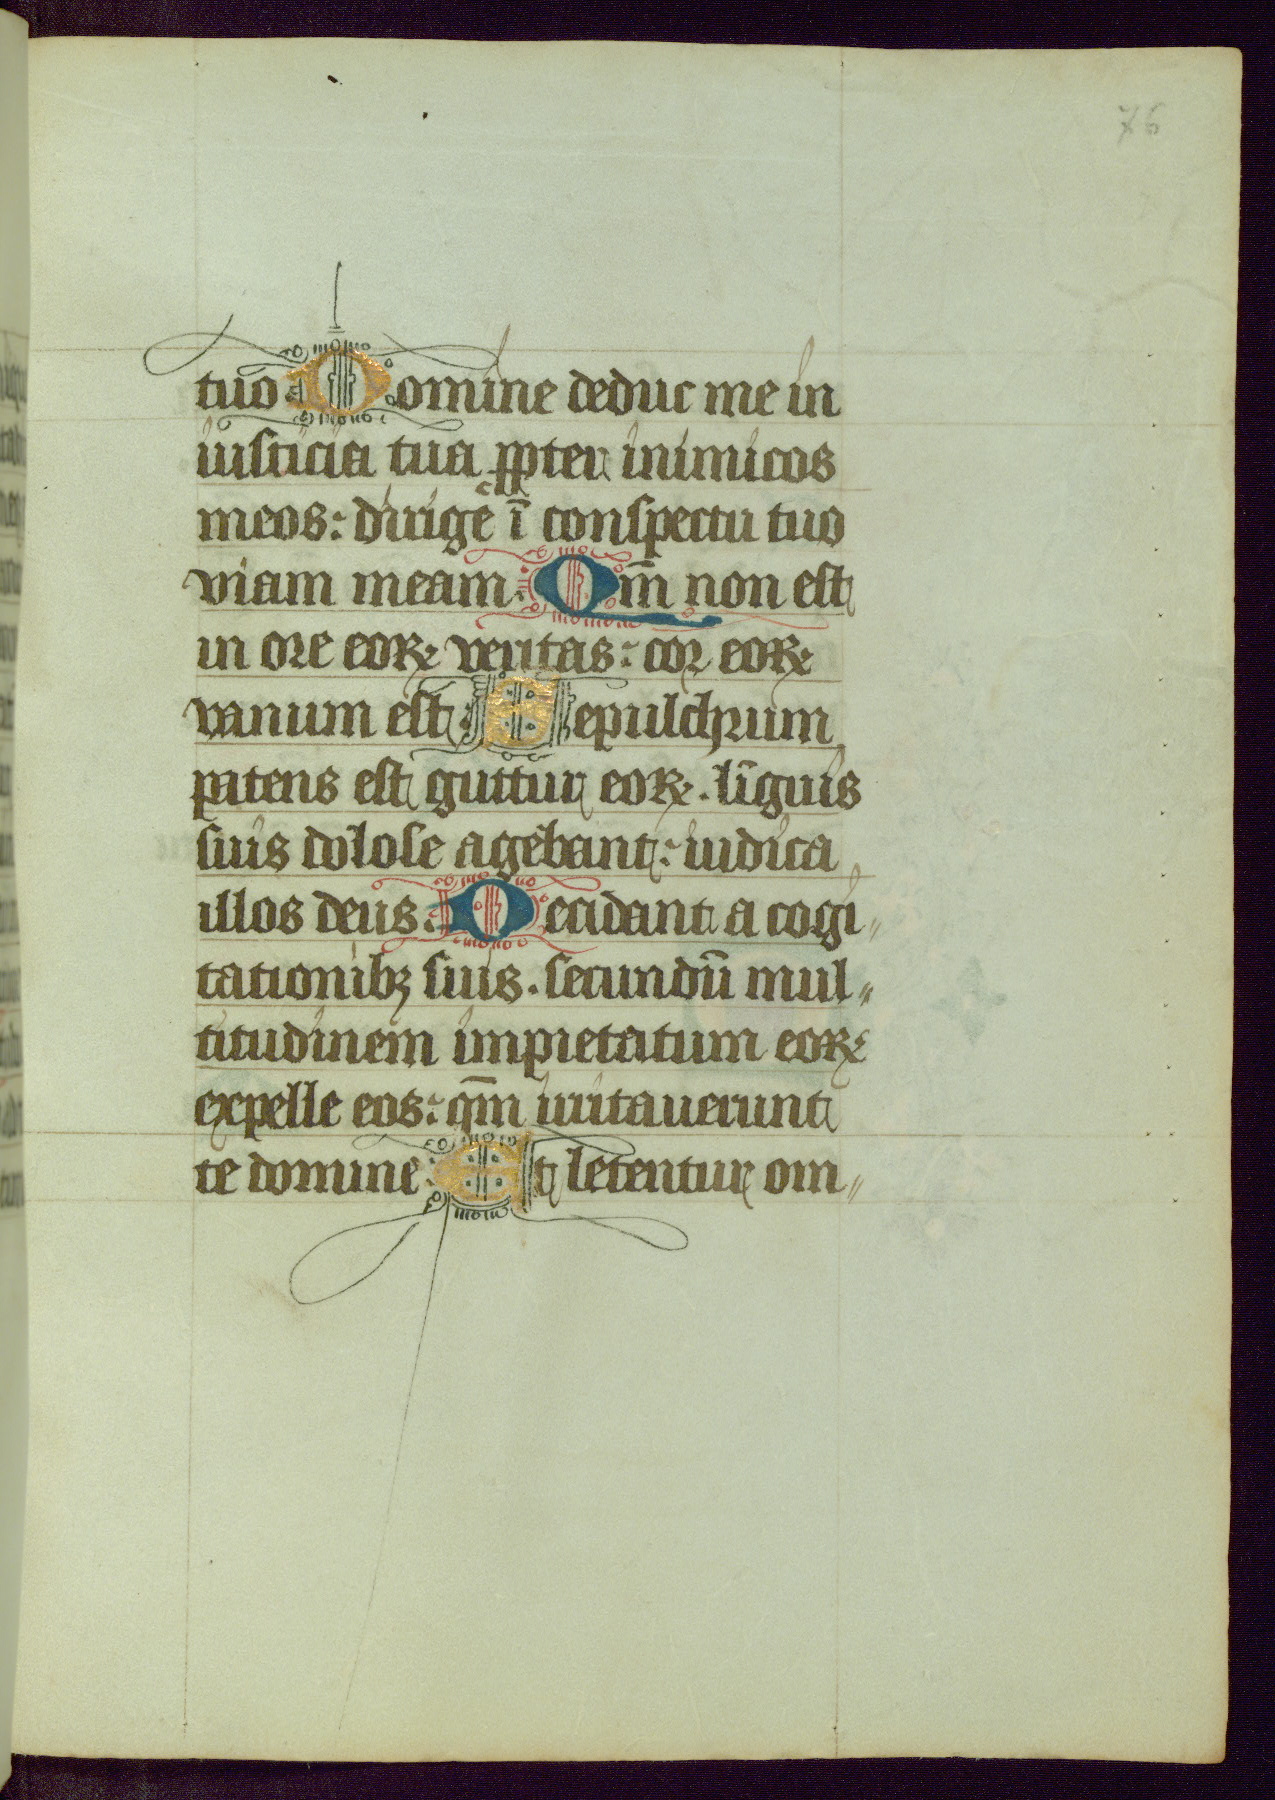 76
tuo Domine deduc me in
iusticia tua ꝓpter inimicos
meos: dirige ī conspectu tuo
viam meam. Qm̄ non est
in ore eoꝝ veritas: cor eoꝝ
vanum est Sepulchrum
patens est guttur eoꝝ. linguis
suis dolose agebant: iudica
illos deus. Decidant a cogi〃
tationibꝫ suis. secundū mul〃
titudinem impietatum eoꝝ
expelle eos: qm̄ irritauerunt
te domine Et letentur om〃